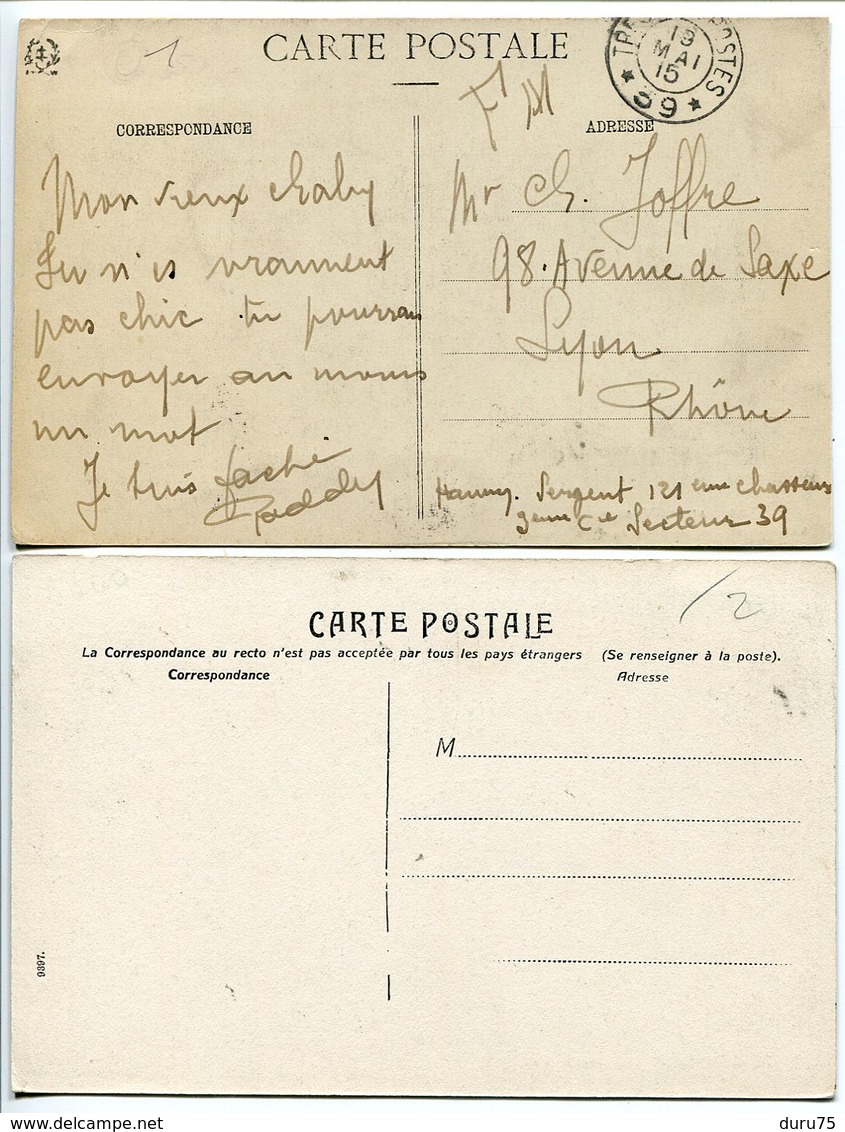 1
CARTE POSTALE
TRESOR POSTES
19
MAI
15
* 39 *
F M
CORRESPONDANCE
ADRESSE
Mon vieux chaby
Tu n'es vraiment
pas chic tu pourrais
envoyer au moins
un mot
Je suis faché
Paddy
Mr Ch. Joffre
98. Avenue de Saxe
Lyon
Rhône
Sergent 121 eme chasseurs
3eme Cie Secteur 39
2
CARTE POSTALE
La Correspondance au recto n'est pas acceptée par tous les pays étrangers (Se renseigner à la poste).
Correspondance
Adresse
M
9397.
duru75